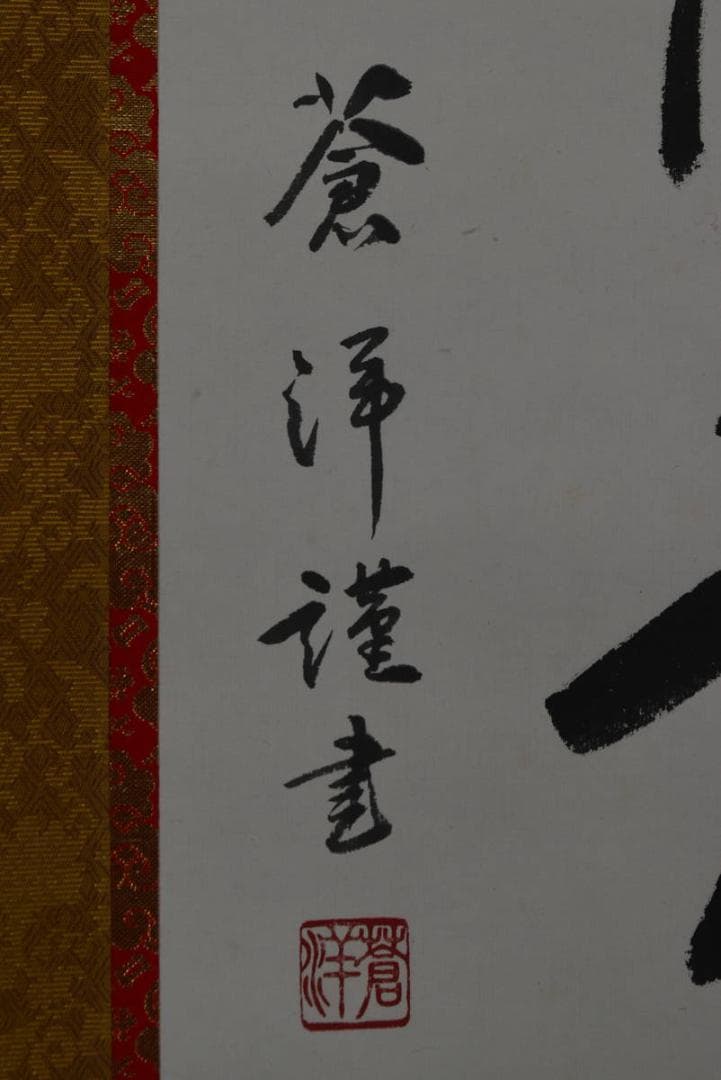 蒼洋謹書
蒼洋